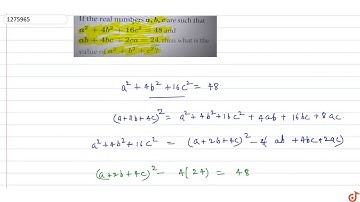 1275965
If the real numbers a, b, c are such that
a² + 4b² + 16c² = 48 and
ab + 4bc + 2ca = 24, then what is the
value of a² + b² + c²?
a² + 4b² + 16c² = 48
(a+2b+4c)² = a² + 4b² + 16c² + 4ab + 16bc + 8ac
a² + 4b² + 16c² = (a+2b+4c)² - 4(ab + 4bc + 2ac)
(a+2b+4c)² - 4(24) = 48